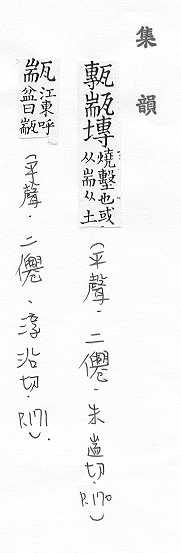 集韻
甎㼷塼燒墼也或
从耑从土
(平聲．二僊．朱遄切．P.170)
㼷江東呼
盆曰㼷
(平聲．二僊．淳沿切．P.171)